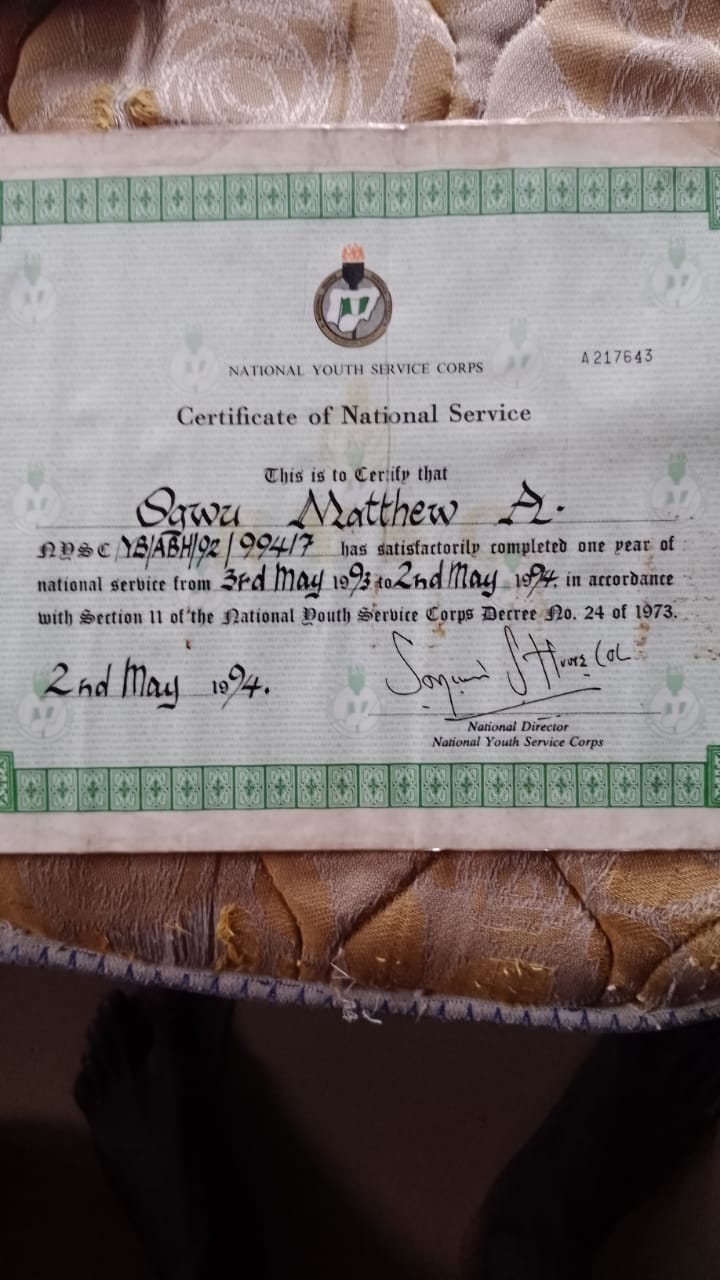 NATIONAL YOUTH SERVICE CORPS
A217643
Certificate of National Service
This is to Certify that
Ogwu Matthew A.
NYSC YB/ABH/92/99417 has satisfactorily completed one year of
national service from 3rd May 1993 to 2nd May 1994. in accordance
with Section 11 of the National Youth Service Corps Decree No. 24 of 1973.
2nd May 1994.
COL
National Director
National Youth Service Corps